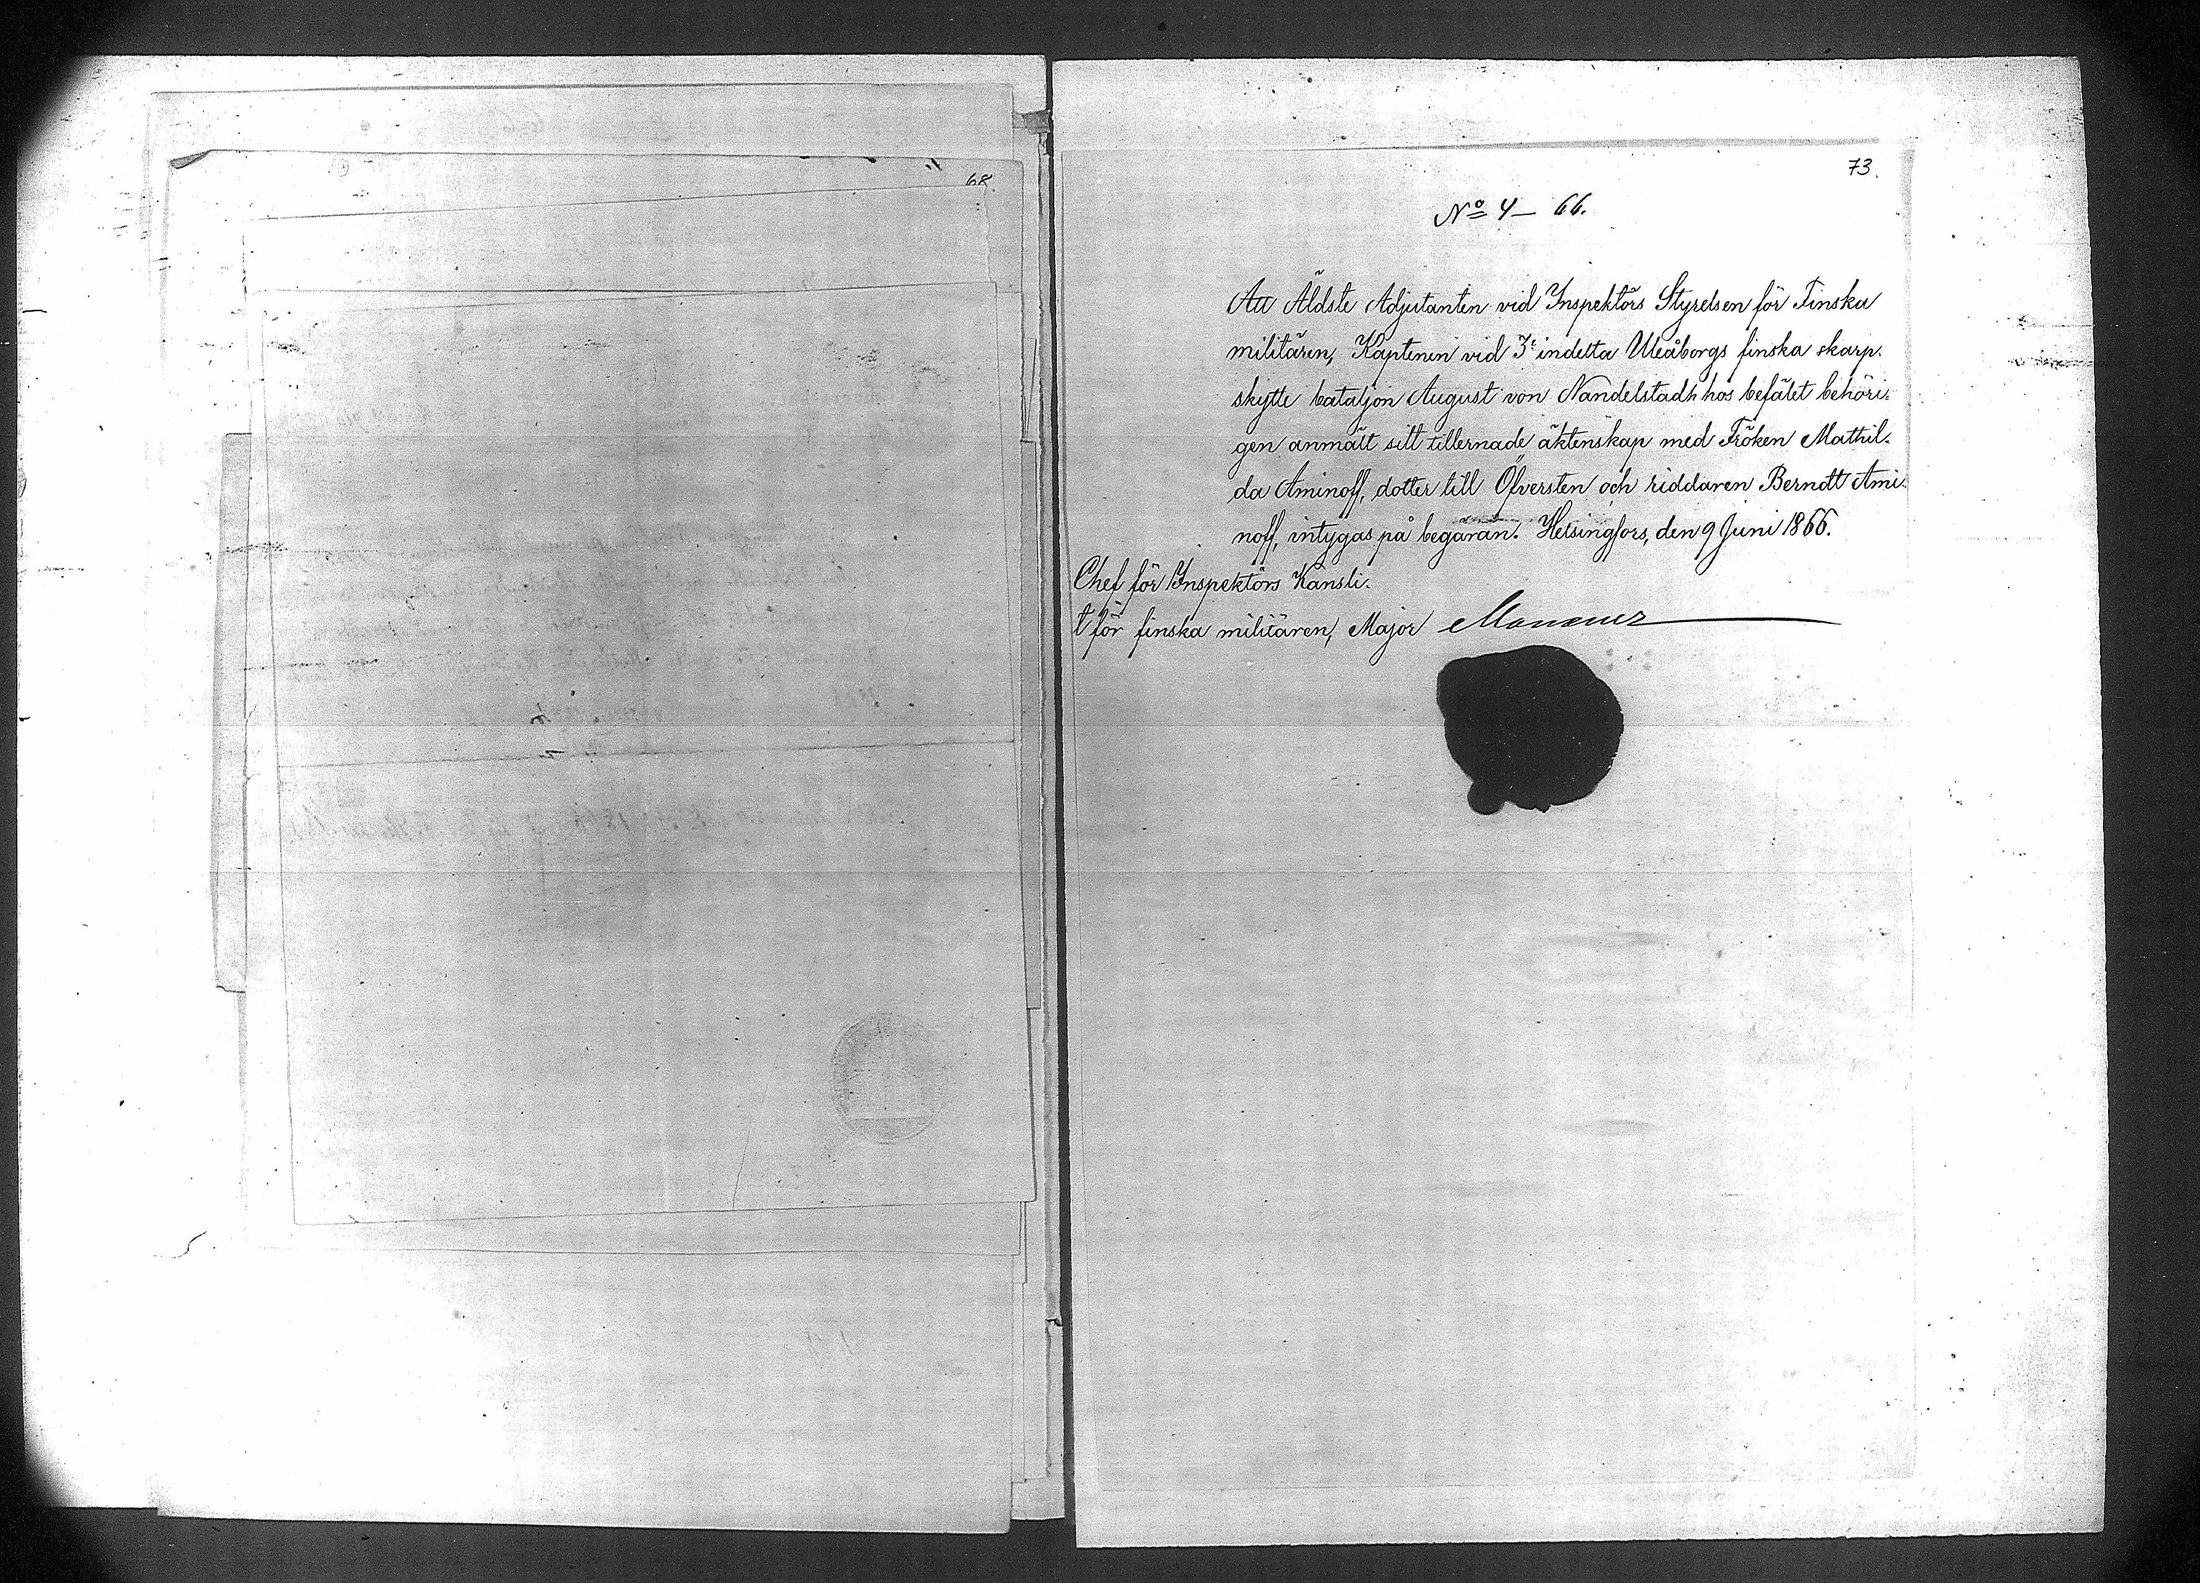 68.
73.
No 4 – 66.
Att Äldste Adjutanten vid Inspektörs Styrelsen för Finska
militären, Kaptenen vid 3e indelta Uleåborgs finska skarp-
skytte bataljon August von Nandelstadh hos befälet behöri-
gen anmält sitt tillernade äktenskap med Fröken Mathil-
da Aminoff, dotter till Öfversten och riddaren Berndt Ami-
noff, intygas på begäran. Helsingfors, den 9 Juni 1866.
Chef för Inspektörs Kansli-
t för finska militären, Major